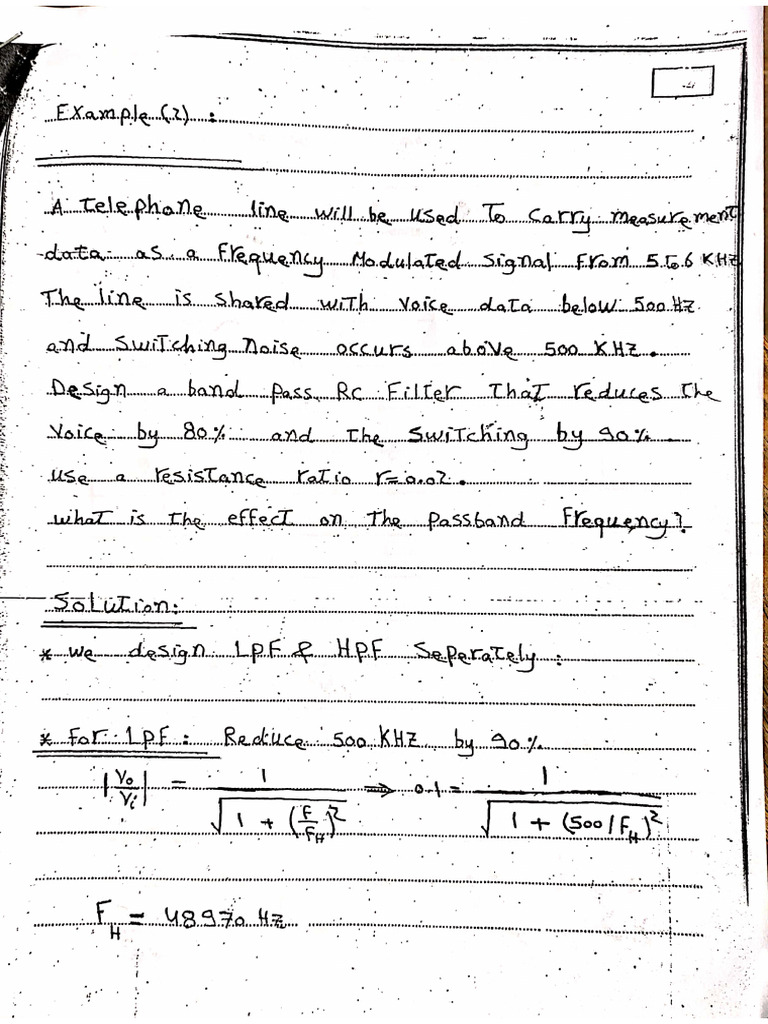 Example(2):
A telephone line will be used To carry measurement
data as a frequency Modulated Signal From 5 to 6 KHz
The line is shared with voice data below 500 Hz
and Switching noise occurs above 500 KHz.
Design a band pass RC Filter That reduces the
Voice by 80% and The Switching by 90%
use a resistance ratio r=0.02.
what is the effect on The Passband Frequency?
Solution:
* we design LPF & HPF Seperately:
* for LPF: Reduce 500 KHz by 90%
|Vo/Vi| = 1/√(1 + (F/F_H)²) ⇒ 0.1 = 1/√(1 + (500/F_H)²)
F_H = 48970 Hz